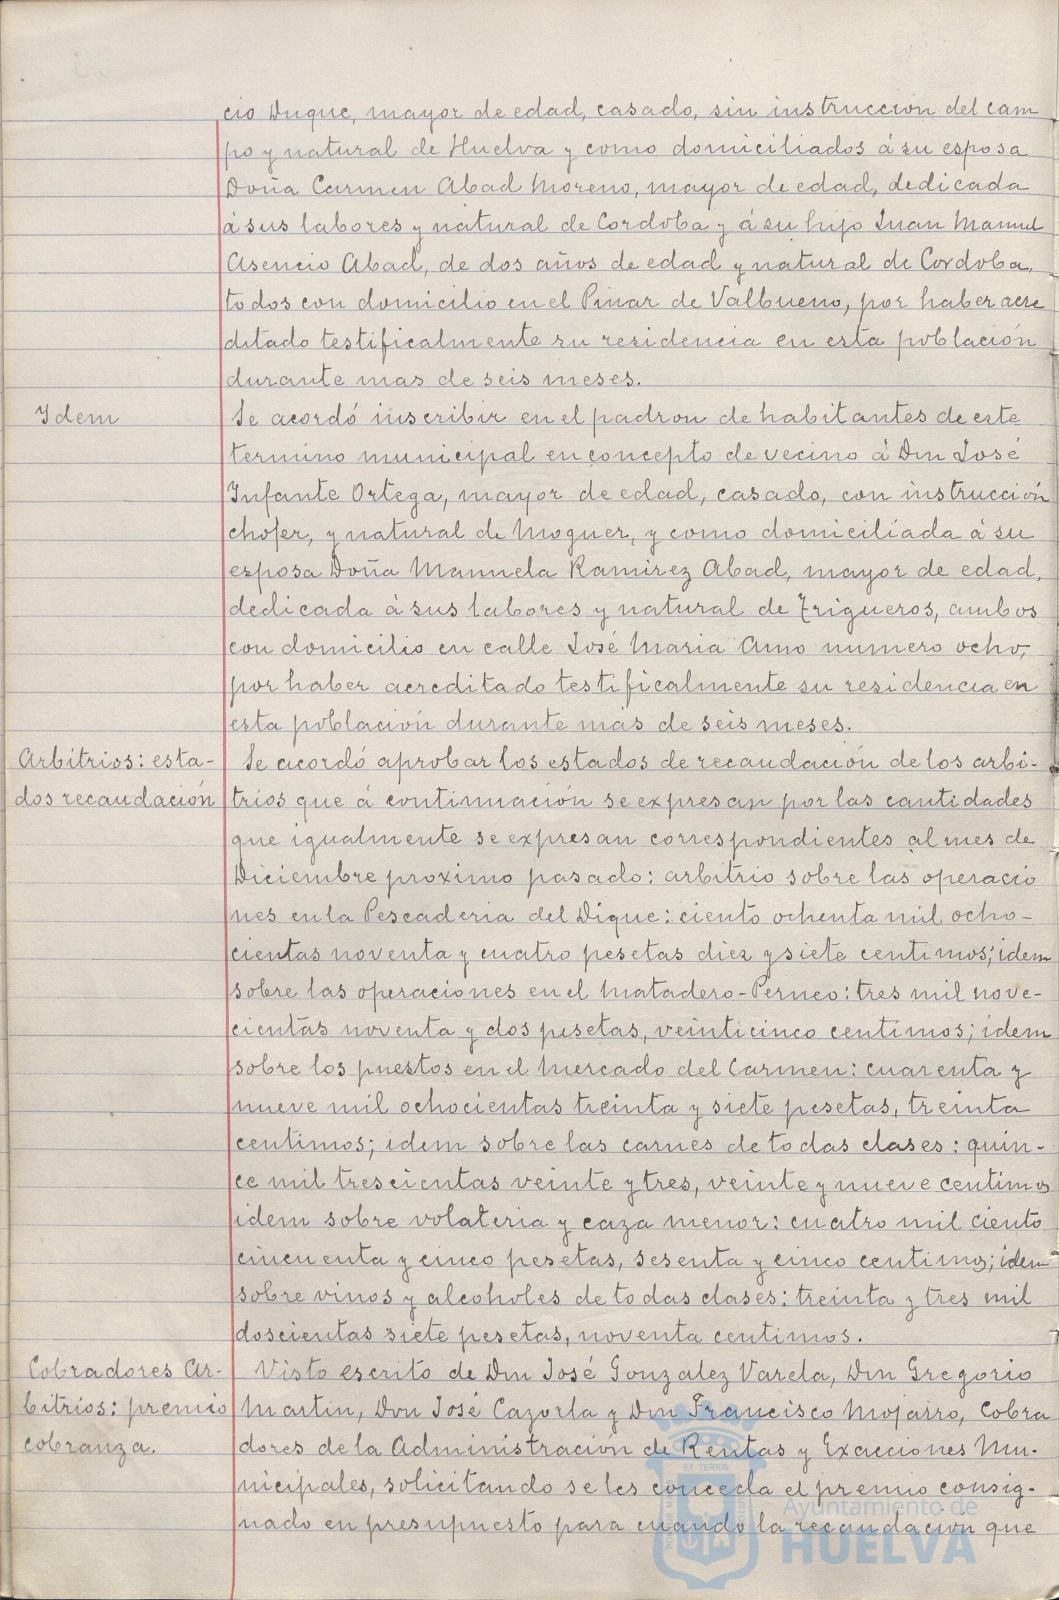 cio Duque, mayor de edad, casado, sin instrucción del cam
po y natural de Huelva y como domiciliados á su esposa
Doña Carmen Abad Moreno, mayor de edad, dedicada
á sus labores y natural de Cordoba y á su hijo Juan Manuel
Asencio Abad, de dos años de edad y natural de Cordoba,
todos con domicilio en el Pinar de Valbueno, por haber acre
ditado testificalmente su residencia en esta población
durante mas de seis meses.
Idem
Se acordó inscribir en el padron de habitantes de este
termino municipal en concepto de vecino á Don José
Infante Ortega, mayor de edad, casado, con instrucción
chofer, y natural de Moguer, y como domiciliada á su
esposa Doña Manuela Ramirez Abad, mayor de edad,
dedicada á sus labores y natural de Trigueros, ambos
con domicilio en calle José Maria Amo numero ocho,
por haber acreditado testificalmente su residencia en
esta población durante mas de seis meses.
Arbitrios: esta-
dos recaudación
Se acordó aprobar los estados de recaudación de los arbi-
trios que á continuación se expresan por las cantidades
que igualmente se expresan correspondientes al mes de
Diciembre proximo pasado: arbitrio sobre las operacio
nes en la Pescaderia del Dique: ciento ochenta mil ocho-
cientas noventa y cuatro pesetas diez y siete centimos; idem
sobre las operaciones en el Matadero-Perneo: tres mil nove-
cientas noventa y dos pesetas, veinticinco centimos; idem
sobre los puestos en el Mercado del Carmen: cuarenta y
nueve mil ochocientas treinta y siete pesetas, treinta
centimos; idem sobre las carnes de todas clases: quin-
ce mil trescientas veinte y tres, veinte y nueve centimos
idem sobre volateria y caza menor: cuatro mil ciento
cincuenta y cinco pesetas, sesenta y cinco centimos; idem
sobre vinos y alcoholes de todas clases: treinta y tres mil
doscientas siete pesetas, noventa centimos.
Cobradores Ar-
bitrios: premio
cobranza.
Visto escrito de Don José Gonzalez Varela, Don Gregorio
Martin, Don José Cazorla y Don Francisco Mojarro, Cobra
dores de la Administración de Rentas y Exacciones Mu-
nicipales, solicitando se les conceda el premio consig-
nado en presupuesto para cuando la recaudación que
ET TERRÆ
Ayuntamiento de
HUELVA